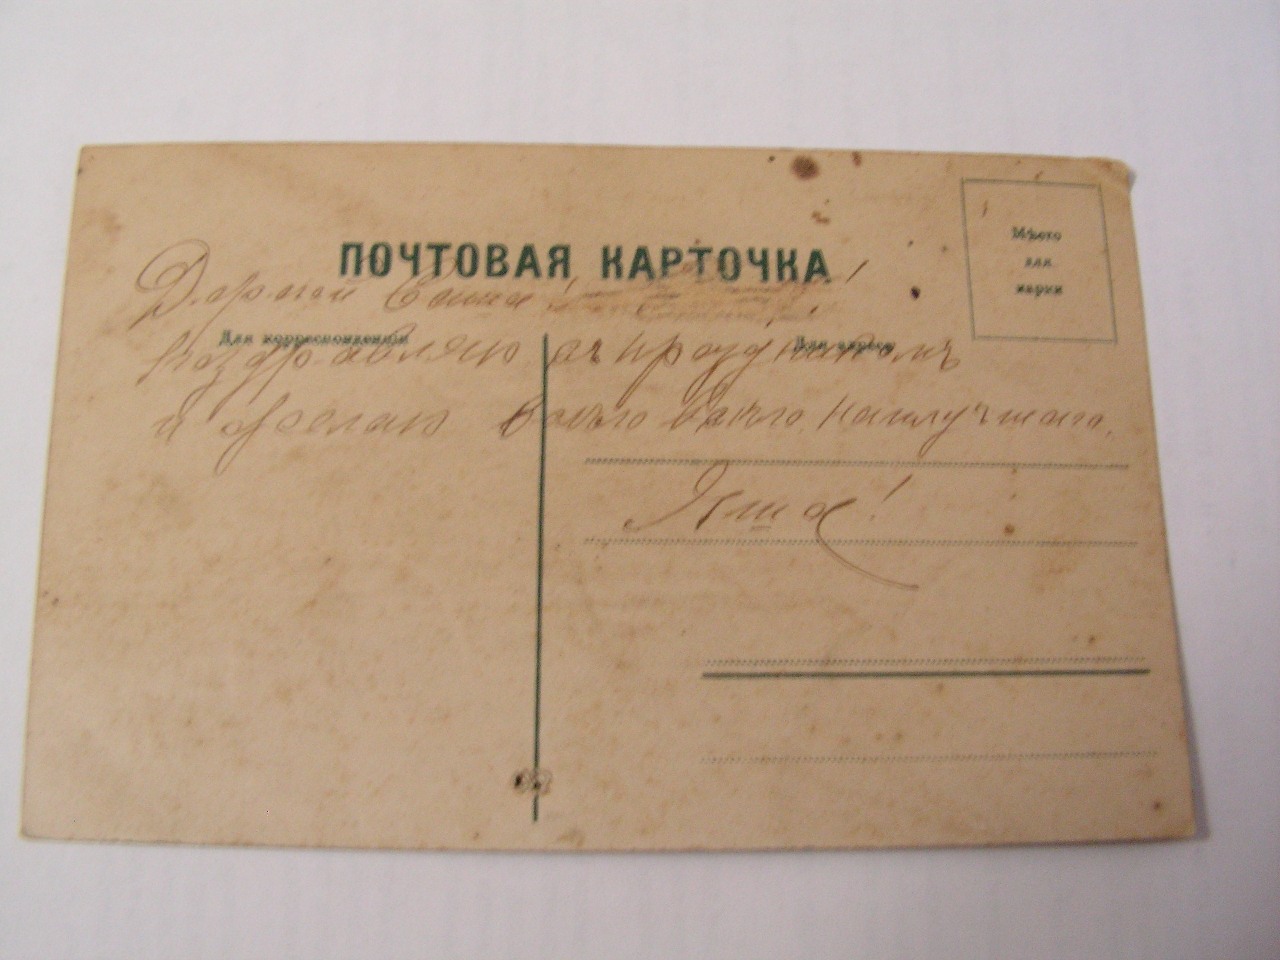 ПОЧТОВАЯ КАРТОЧКА
Мѣсто
для
марки
Дорогой Саша!
Для корреспонденціи
Для адреса
Поздравляю съ праздникомъ
и желаю всего всего наилучшаго.
Яша!